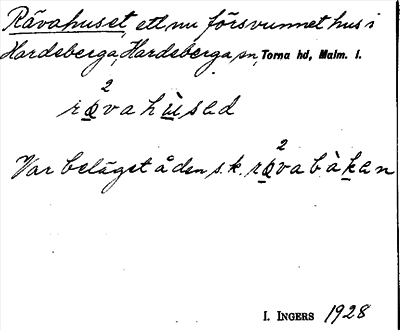 Rävahuset, ett nu försvunnet hus i
Hardeberga, Hardeberga sn, Torna hd, Malm. l.
2
rövahùsəd
Var beläget å den s.k. rö²vabàkən
I. INGERS 1928